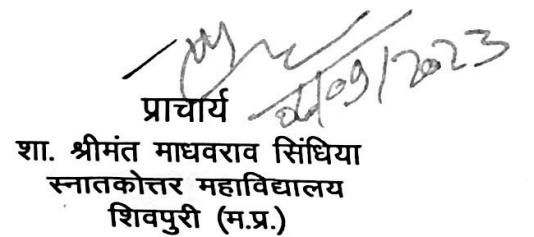 प्राचार्य
शा. श्रीमंत माधवराव सिंधिया
स्नातकोत्तर महाविद्यालय
शिवपुरी (म.प्र.)